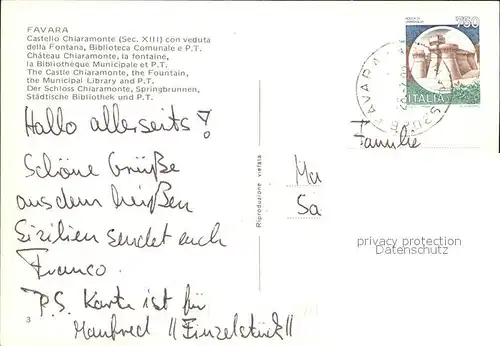 FAVARA
Castello Chiaramonte (Sec. XIII) con veduta
della Fontana, Biblioteca Comunale e P.T.
Château Chiaramonte, la fontaine,
la Bibliothèque Municipale et P.T.
The Castle Chiaramonte, the Fountain,
the Municipal Library and P.T.
Der Schloss Chiaramonte, Springbrunnen,
Städtische Bibliothek und P.T.
Hallo allerseits!
Schöne Grüße
aus dem heißen
Sizilien sendet euch
Franco.
P.S. Karte ist für
Manfred "Einzelstück"
3
Riproduzione vietata
750
ITALIA
FAVARA
Familie
Ma
Sa
privacy protection
Datenschutz